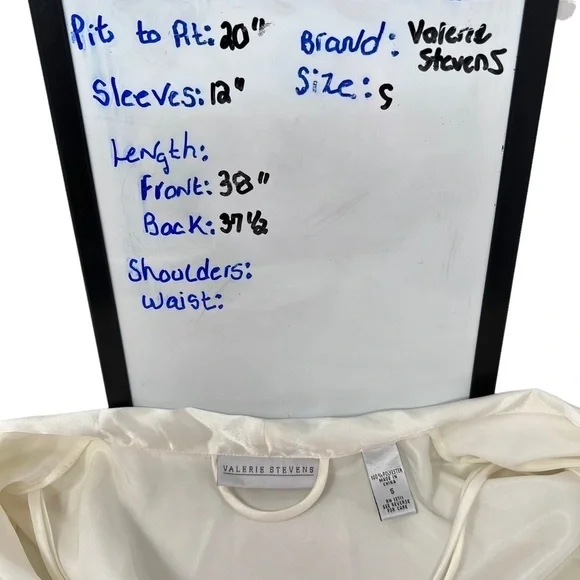 Pit to Pit: 20"
Brand: Valerie Stevens
Sleeves: 12"
Size: S
Length:
Front: 38"
Back: 37 1/2
Shoulders:
Waist:
VALERIE STEVENS
100% POLYESTER
MADE IN
CHINA
S
SEE REVERSE
FOR CARE